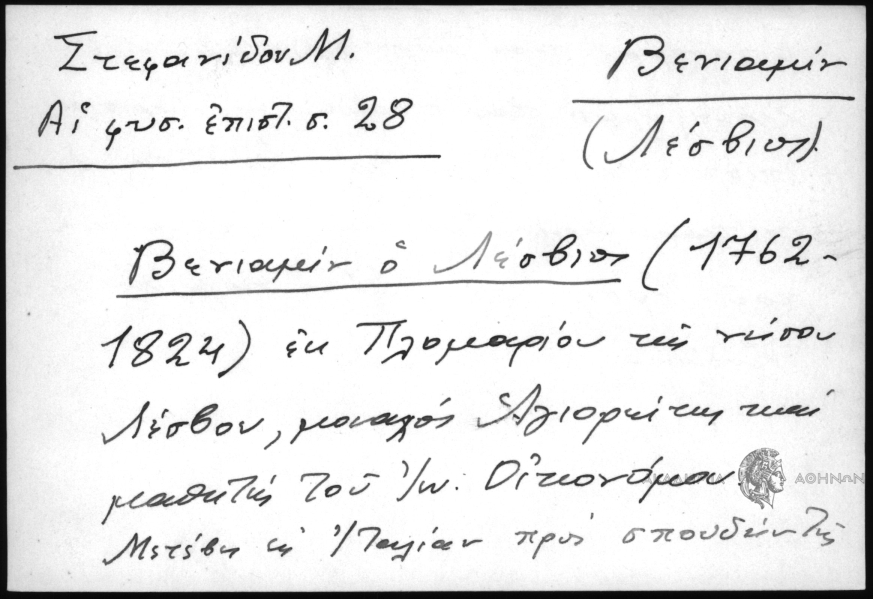 Στεφανίδου Μ.
Αἱ φυσ. ἐπιστ. σ. 28
Βενιαμίν
(Λέσβιος)
Βενιαμίν ὁ Λέσβιος (1762-
1824) ἐκ Πλομαρίου τῆς νήσου
Λέσβου, μοναχός Ἁγιορείτης καί
μαθητής τοῦ Ἰω. Οἰκονόμου
ΑΚΑΔΗΜΙΑ ΑΘΗΝΩΝ
Μετέβη εἰς Ἰταλίαν πρός σπουδήν τῆς